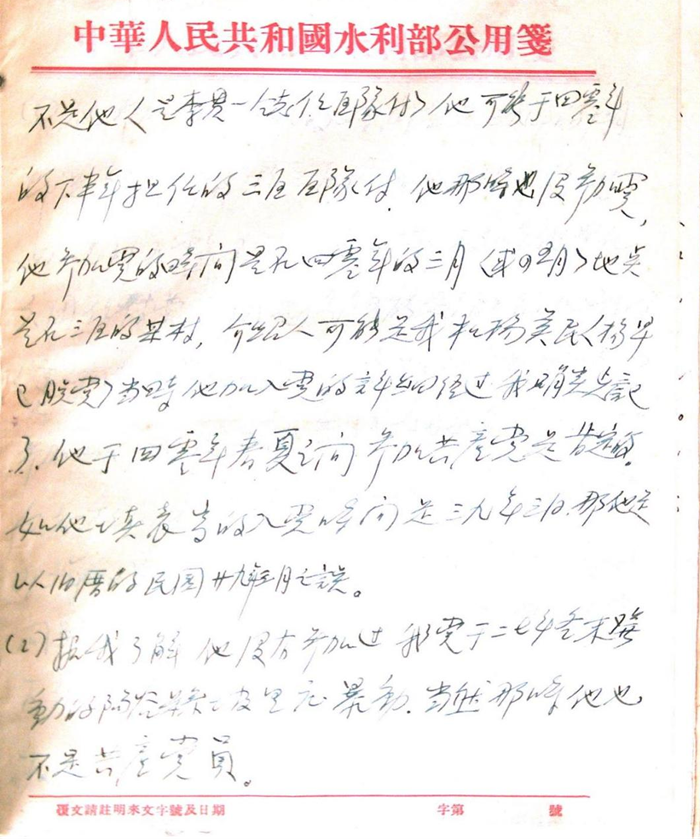 中華人民共和國水利部公用箋
不是他（是李貫一先任区隊付）他可能于四零年
的下半年担任的三区区隊付．他那時也没参加党，
他参加党的時间是在四零年的三月（或四五月）地点
是在三区的某村，介绍人可能是我和杨英民（杨早
已脱党）当時他加入党的詳细经过我確实忘記
了．他于四零年春夏之间参加共產党是肯定的。
如他填表当的入党時间是三九年三月．那他是
以旧曆的民国廿九年三月之誤。
（2）据我了解他没有参加过我党于二七年冬末發
動的 暴動．当然那時他也
不是共產党員。
覆文請註明來文字號及日期 字第 號